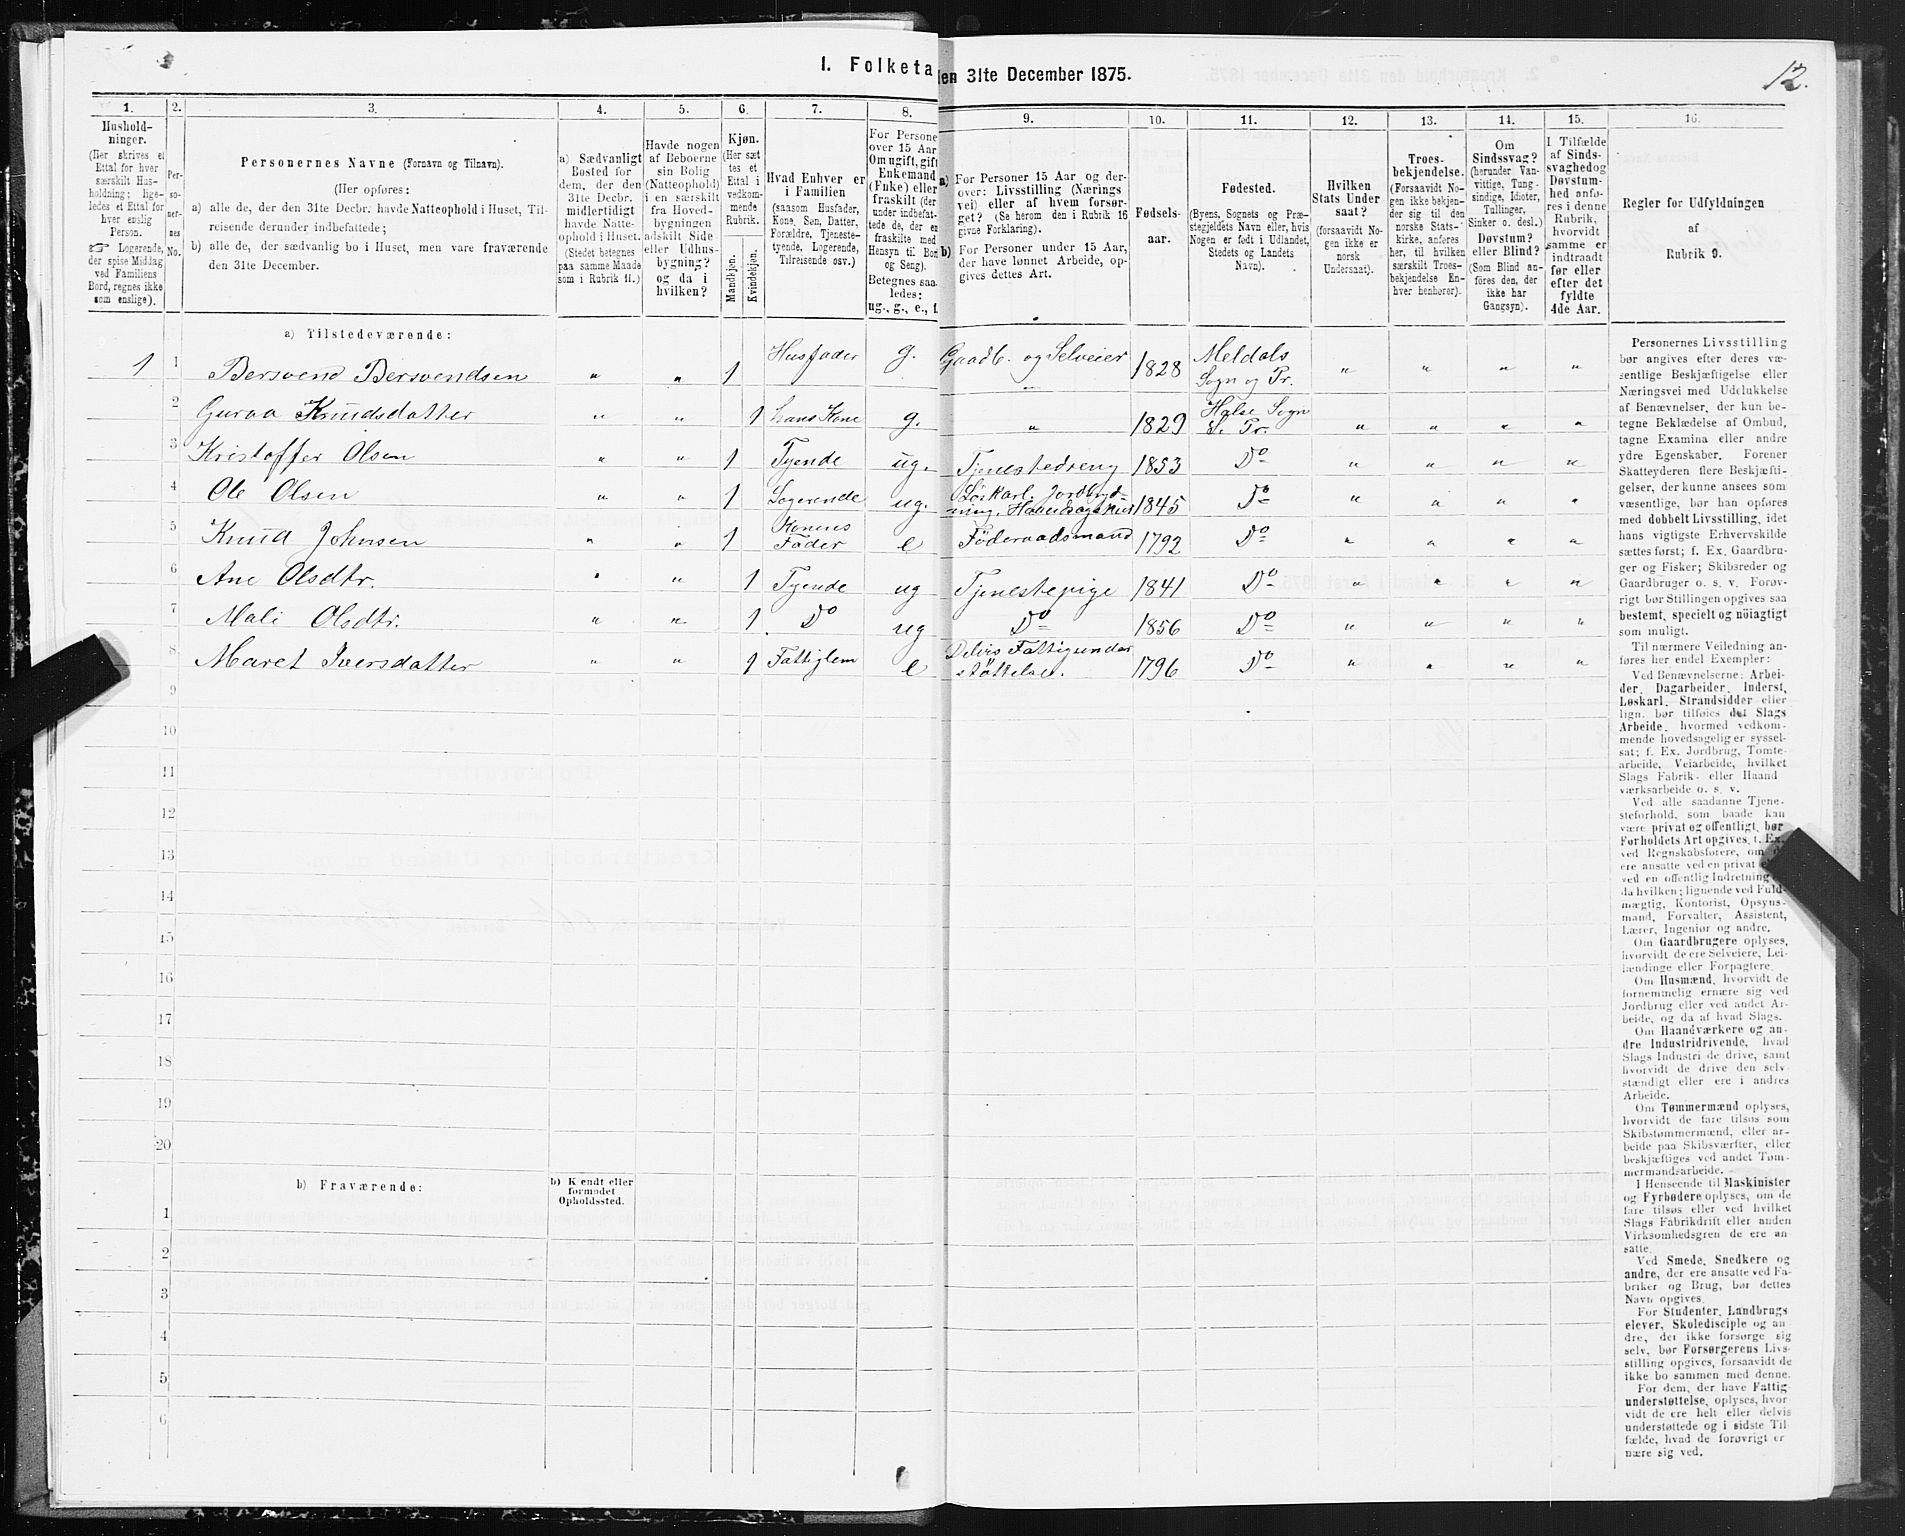 1. Folketa
den 31te December 1875.
12.
1. 2. 3. 4. 5. 6. 7. 8. 9. 10. 11. 12. 13. 14. 15. 16.
Hushold-
ninger.
(Her skrives et
Ettal for hver
særskilt Hus-
holdning; lige-
ledes et Ettal for
hver enslig
Person.
☞ Logerende,
der spise Middag
ved Familiens
Bord, regnes ikke
som enslige).
Per-
so-
ner-
nes
No.
Personernes Navne (Fornavn og Tilnavn).
(Her opføres:
a) alle de, der den 31te Decbr. havde Natteophold i Huset, Til-
reisende derunder indbefattede;
b) alle de, der sædvanlig bo i Huset, men vare fraværende
den 31te December.
a) Sædvanligt
Bosted for
dem, der den
31te Decbr.
midlertidigt
havde Natte-
ophold i Huset.
(Stedet betegnes
paa samme Maade
som i Rubrik 11.)
Havde nogen
af Beboerne
sin Bolig
(Natteophold)
i en særskilt
fra Hoved-
bygningen
adskilt Side
eller Udhus-
bygning?
og da i
hvilken?
Kjøn.
(Her sæt
tes et
Ettal i
vedkom-
mende
Rubrik.
Mandkjøn.
Kvindekjøn.
Hvad Enhver er
i Familien
(saasom Husfader,
Kone, Søn, Datter,
Forældre, Tjeneste-
tyende, Logerende,
Tilreisende osv.)
For Persone
over 15 Aar
Om ugift, gift
Enkemand
(Enke) eller
fraskilt (der
under indbefat-
tede de, der er
fraskilte med
Hensyn til Bor
og Seng).
Betegnes saa-
ledes:
ug., g., e., f.
a) For Personer 15 Aar og der-
over: Livsstilling (Nærings
vei) eller af hvem forsør-
get? (Se herom den i Rubrik 16
givne Forklaring).
b) For Personer under 15 Aar,
der have lønnet Arbeide, op-
gives dettes Art.
Fødsels-
aar.
Fødested.
(Byens, Sognets og Præ-
stegjeldets Navn eller, hvis
Nogen er født i Udlandet,
Stedets og Landets
Navn).
Hvilken
Stats Under
saat?
(forsaavidt No-
gen ikke er
norsk
Undersaat).
Troes-
bekjendelse.
(Forsaavidt No-
gen ikke bekjen-
der sig til den
norske Stats-
kirke, anføres
her, til hvilken
særskilt Troes-
bekjendelse En-
hver henhører).
Om
Sindssvag?
(herunder Van-
vittige, Tung-
sindige, Idioter,
Tullinger,
Sinker o. desl.)
Døvstum?
eller Blind?
(Som Blind an-
føres den, der
ikke har
Gangsyn).
I Tilfælde
af Sinds-
svaghedog
Døvstum-
hed anfø-
res i denne
Rubrik,
hvorvidt
samme er
indtraadt
før eller
efter det
fyldte
4de Aar.
Regler for Udfyldningen
af
Rubrik 9.
a) Tilstedeværende:
1 1 Bersvend Bersvendsen " " 1 Husfader g. Gaardb. og Selveier 1828 Meldals Sogn og Pr. " " " "
2 Guroa Knudsdatter " " 1 hans Kone g. " 1829 Halse Sogn S. Pr. " " " "
3 Kristoffer Olsen " " 1 Tyende ug. Tjenestedreng 1853 Do " " " "
4 Ole Olsen " " 1 Logerende ug. 1845 Do " " " "
5 Knud Johnsen " " 1 Konens Fader e Föderaadsmand 1792 Do " " " "
6 Ane Olsdtr. " " 1 Tyende ug Tjenestepige 1841 Do " " " "
7 Mali Olsdtr. " " 1 Do ug Do 1856 Do " " " "
8 Maret Iversdatter " " 1 Fattiglem e Delvis Fattigunder støttelse. 1796 Do " " " "
9
10
11
12
13
14
15
16
17
18
19
20
b) Fraværende:
b) Kendt eller
formodet
Opholdssted.
1
2
3
4
5
6
Personernes Livsstilling
bør angives efter deres væ-
sentlige Beskjæftigelse eller
Næringsvei med Udelukkelse
af Benævnelser, der kun be-
tegne Beklædelse af Ombud,
tagne Examina eller andre
ydre Egenskaber. Forener
Skatteyderen flere Beskjæfti-
gelser, der kunne ansees som
væsentlige, bør han opføres
med dobbelt Livsstilling, idet
hans vigtigste Erhvervskilde
sættes først; f. Ex. Gaardbru-
ger og Fisker; Skibsreder og
Gaardbruger o. s. v. Forøv-
rigt bør Stillingen opgives saa
bestemt, specielt og nöiagtigt
som muligt.
Til nærmere Veiledning an-
føres her endel Exempler:
Ved Benævnelserne: Arbei-
der, Dagarbeider, Inderst,
Løskarl, Strandsidder eller
lign. bør tilføies det Slags
Arbeide, hvormed vedkom-
mende hovedsagelig er syssel-
sat; f. Ex. Jordbrug, Tomte-
arbeide, Veiarbeide, hvilket
Slags Fabrik- eller Haand
værksarbeide o. s. v.
Ved alle saadanne Tjene-
steforhold, som baade kan
være privat og offentligt, bør
Forholdets Art opgives, f. Ex.
ved Regnskabsførere, om
ere ansatte ved en privat
ved en offentlig Indretning
da hvilken; lignende ved Fuld-
mægtig, Kontorist, Opsyns-
mand, Forvalter, Assistent,
Lærer, Ingeniør og andre.
Om Gaardbrugere oplyses,
hvorvidt de ere Selveiere, Lei-
lændinge eller Forpagtere.
Om Husmænd, hvorvidt de
fornemmelig ernære sig ved
Jordbrug eller ved andet Ar-
beide, og da af hvad Slags.
Om Haandværkere og an-
dre Industridrivende, hvad
Slags Industri de drive, samt
hvorvidt de drive den selv-
stændigt eller ere i andres
Arbeide.
Om Tømmermænd oplyses,
hvorvidt de fare tilsøs som
Skibstømmermænd, eller ar-
beide paa Skibsværfter, eller
beskjæftiges ved andet Tøm-
mermandsarbeide.
I Henseende til Maskinister
og Fyrbødere oplyses, om de
fare tilsøs eller ved hvilket
Slags Fabrikdrift eller anden
Virksomhedsgren de ere an
satte.
Ved Smede, Snedkere og
andre, der ere ansatte ved Fa-
briker og Brug, bør dettes
Navn opgives.
For Studenter, Landbrugs
elever, Skoledisciple og an
dre, der ikke forsørge sig
selv, bør Forsørgerens Livs-
stilling opgives, forsaavidt de
ikke bo sammen med denne.
For dem, der have Fattig
understøttelse, oplyses, hvor
vidt de ere helt eller delvis
understøttede og i sidste Til-
fælde, hvad de forøvrigt er
nære sig ved.